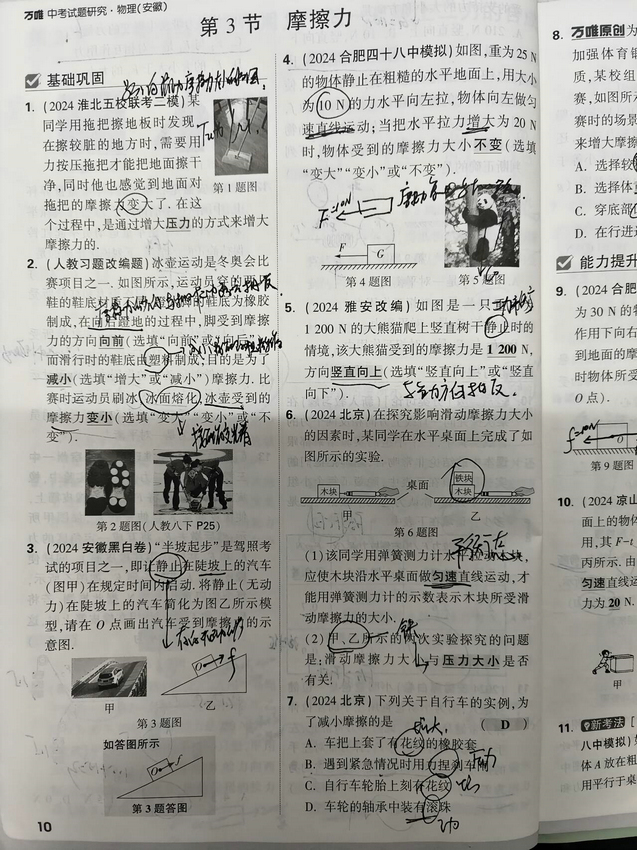 万唯 中考试题研究·物理(安徽)
第3节 摩擦力
基础巩固
1. (2024 淮北五校联考二模)某
同学用拖把擦地板时发现,
在擦较脏的地方时,需要用
力按压拖把才能把地面擦干
净,同时他也感觉到地面对
拖把的摩擦力变大了. 在这
个过程中,是通过增大压力的方式来增大
摩擦力的.
第1题图
2. (人教习题改编题)冰壶运动是冬奥会比
赛项目之一. 如图所示,运动员穿的两只
鞋的鞋底材质不同,蹬冰鞋的鞋底为橡胶
制成,在向后蹬地的过程中,脚受到摩擦
力的方向向前(选填“向前”或“向后”),
而滑行时的鞋底由塑料制成,目的是为了
减小(选填“增大”或“减小”)摩擦力. 比
赛时运动员刷冰,冰面熔化,冰壶受到的
摩擦力变小(选填“变大”“变小”或“不
变”).
第2题图(人教八下P25)
3. (2024 安徽黑白卷)“半坡起步”是驾照考
试的项目之一,即让静止在陡坡上的汽车
(图甲)在规定时间内启动. 将静止(无动
力)在陡坡上的汽车简化为图乙所示模
型,请在O点画出汽车受到摩擦力的示
意图.
O f
甲
乙
第3题图
如答图所示
O f
第3题答图
10
4. (2024 合肥四十八中模拟)如图,重为25 N
的物体静止在粗糙的水平地面上,用大小
为10 N的力水平向左拉,物体向左做匀
速直线运动;当把水平拉力增大为20 N
时,物体受到的摩擦力大小不变(选填
“变大”“变小”或“不变”).
F=10N
F
G
第4题图
第5题图
5. (2024 雅安改编)如图是一只重为
1 200 N的大熊猫爬上竖直树干静止时的
情境,该大熊猫受到的摩擦力是1 200 N,
方向竖直向上(选填“竖直向上”或“竖直
向下”).
与重力方向相反.
6. (2024 北京)在探究影响滑动摩擦力大小
的因素时,某同学在水平桌面上完成了如
图所示的实验.
木块
桌面
铁块
木块
甲
乙
第6题图
(1)该同学用弹簧测力计水平拉动木块,
应使木块沿水平桌面做匀速直线运动,才
能用弹簧测力计的示数表示木块所受滑
动摩擦力的大小.
(2)甲、乙所示的两次实验探究的问题
是:滑动摩擦力大小与压力大小是否
有关.
7. (2024 北京)下列关于自行车的实例,为
了减小摩擦的是 ( D )
A. 车把上套了有花纹的橡胶套
B. 遇到紧急情况时用力捏刹车
C. 自行车轮胎上刻有花纹
D. 车轮的轴承中装有滚珠
8. 万唯原创
加强体育锻
质,某校组
赛,如图所示
赛时的场景
来增大摩擦
A. 选择较
B. 选择体
C. 穿底部
D. 在行进
能力提升
9.
为30 N的物
作用下向右
到地面的摩
时物体所受
O点).
O
第9题图
10. (2024 凉山
面上的物体
用,其F-t
丙所示. 由
匀速直线运
力为20 N.
甲
11. 新考法
八中模拟)如
体A放在粗
用平行于桌